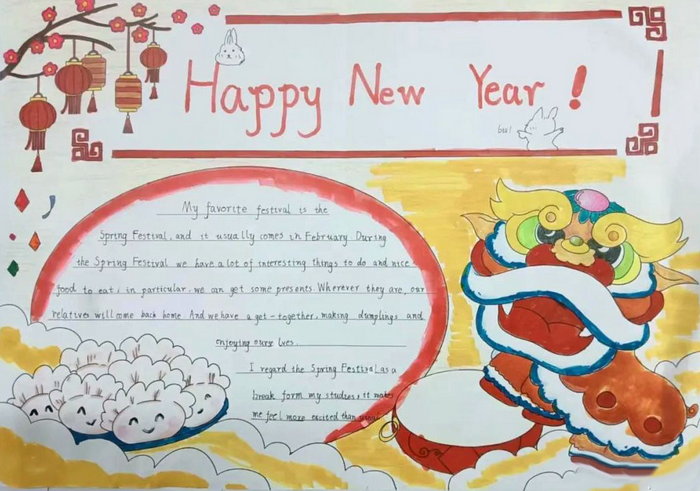 Happy New Year !
bei!
My favorite festival is the
Spring Festival, and it usually comes in February. During
the Spring Festival we have a lot of interesting things to do and nice
food to eat, in particular, we can get some presents. Wherever they are, our
relatives will come back home. And we have a get-together, making dumplings and
enjoying ourselves.
I regard the Spring Festival as a
break form my studies, it makes
me feel more excited than usual